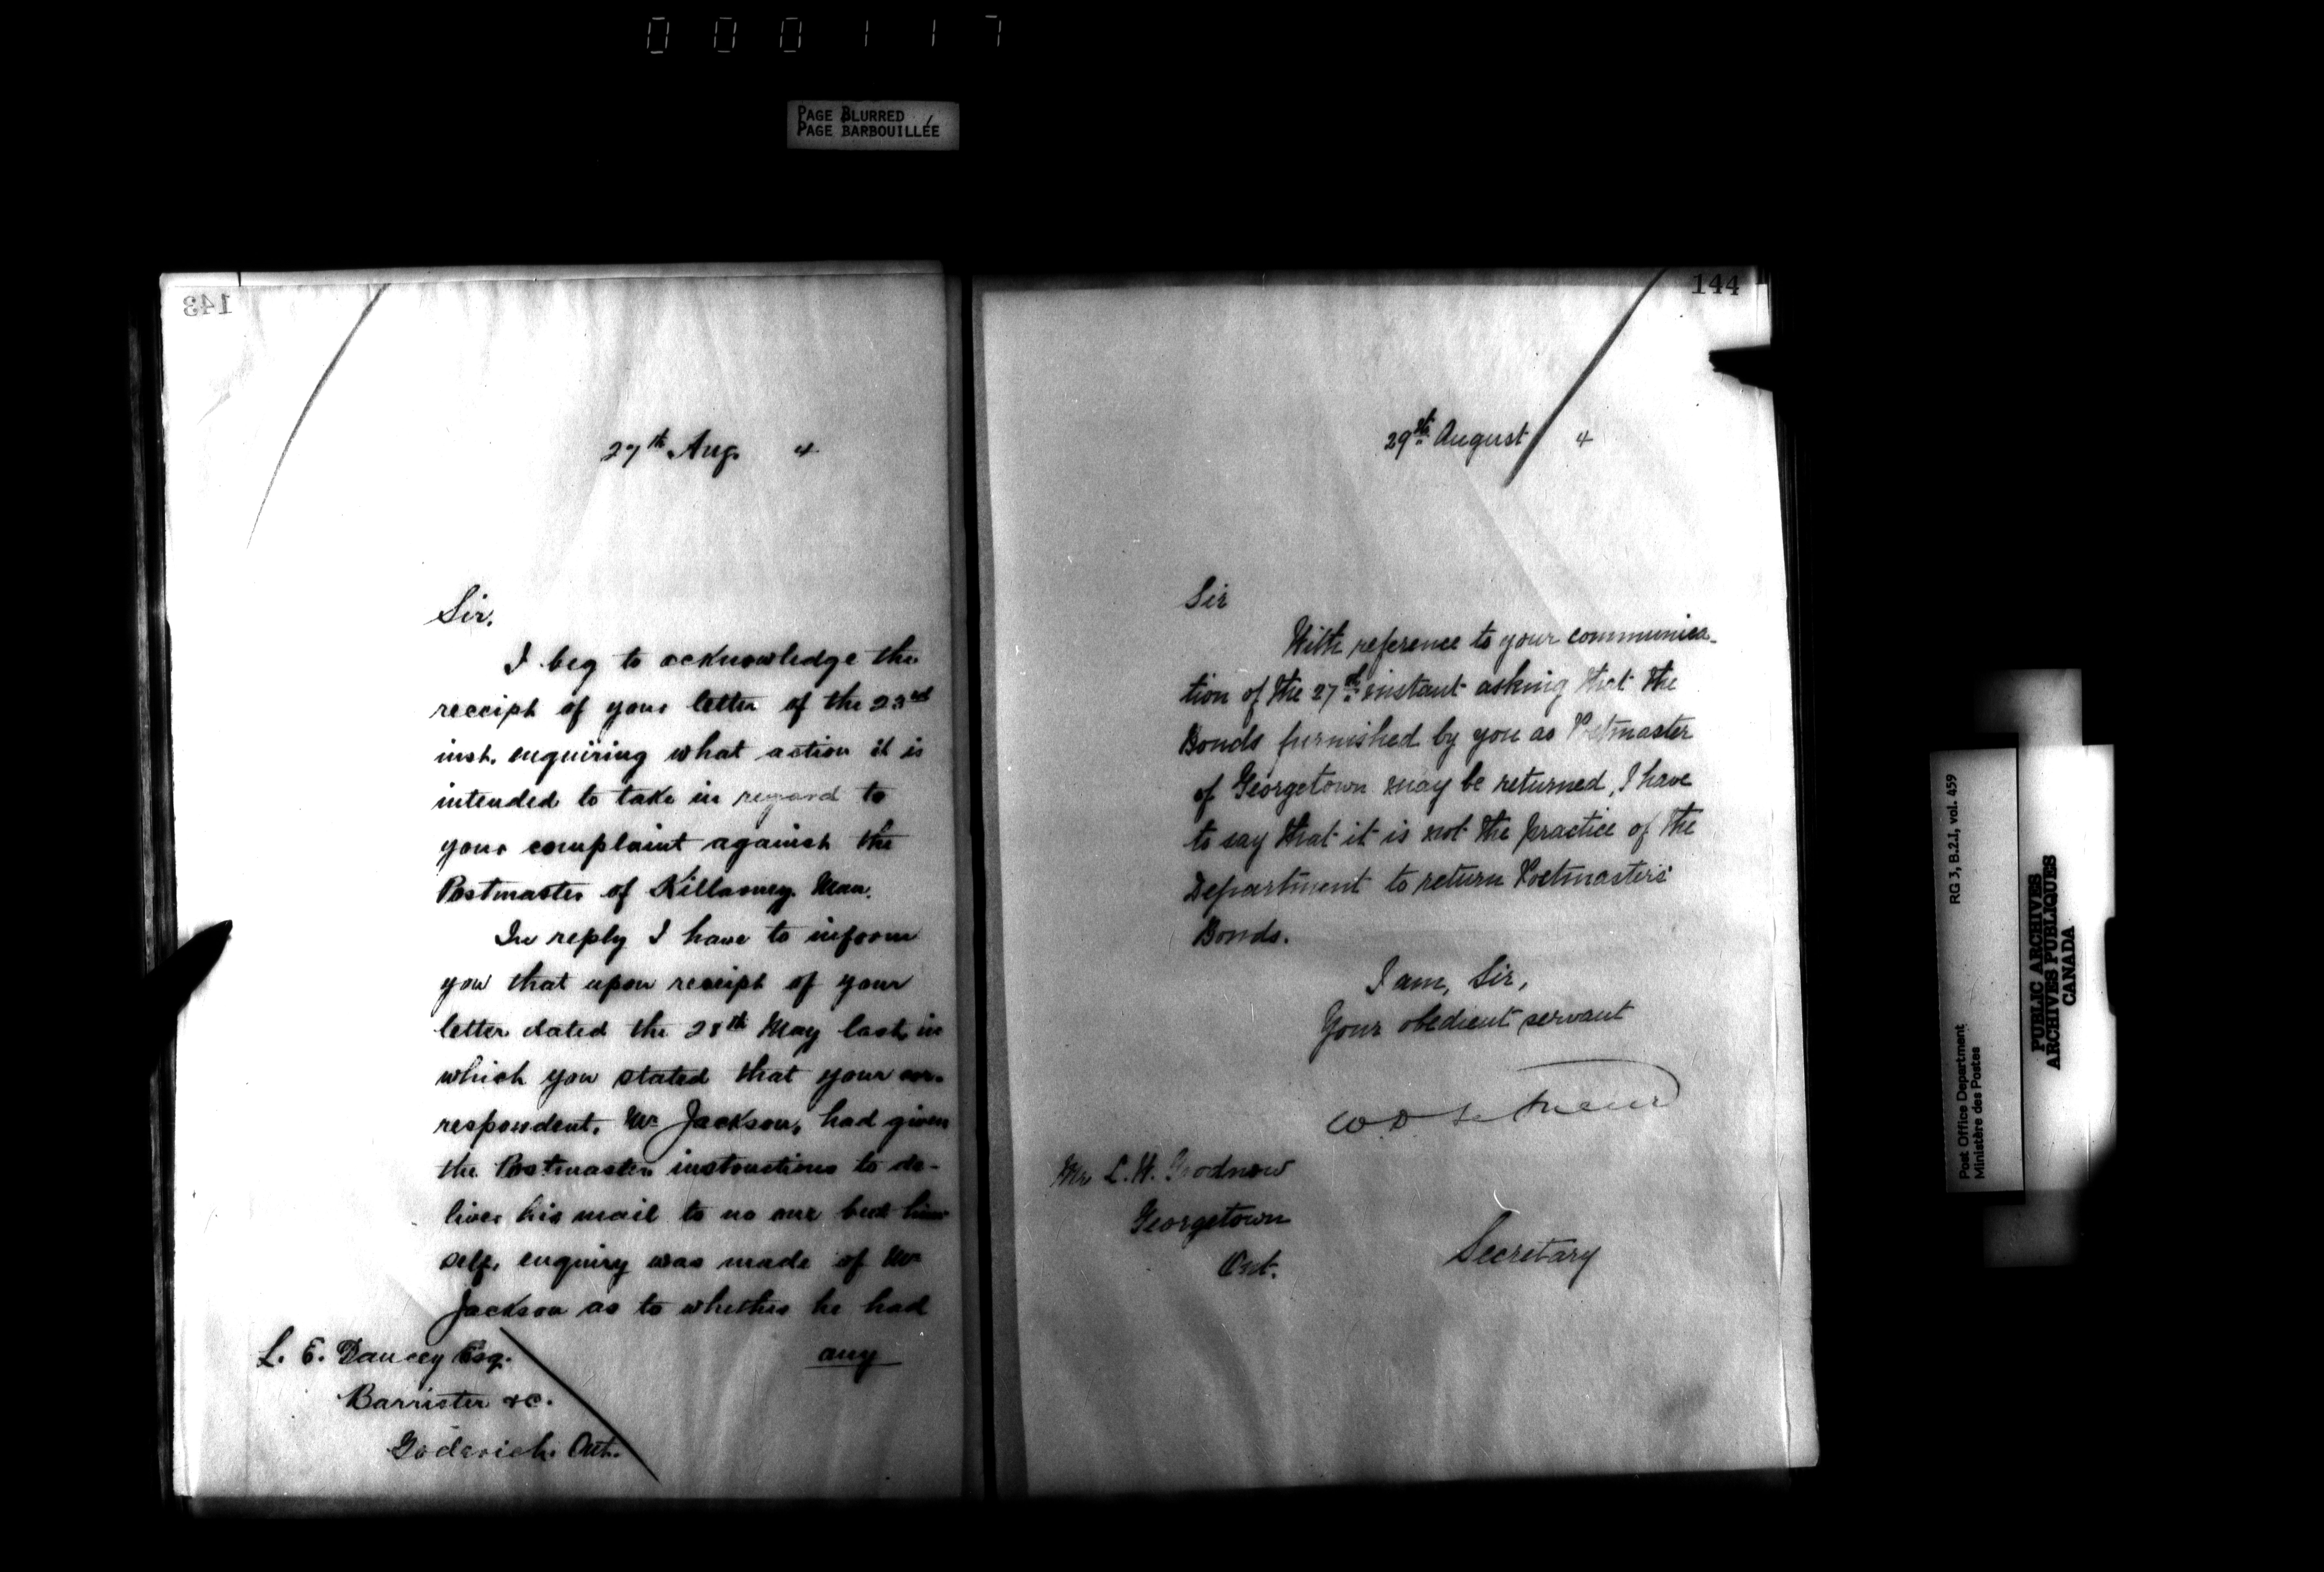 000117
PAGE BLURRED
PAGE BARBOUILLÉE
143
27th Aug. 4
Sir.
I beg to acknowledge the
receipt of your letter of the 23rd
inst. enquiring what action it is
intended to take in regard to
your complaint against the
Postmaster of Killarney. Man.
In reply I have to inform
you that upon receipt of your
letter dated the 28th May last, in
which you stated that your cor-
respondent, Mr Jackson, had given
the Postmaster instructions to de-
liver his mail to no one but him
self, enquiry was made of Mr
Jackson as to whether he had
any
L. E. Dancey Esq.
Barrister &c.
Goderich. Ont.
144
29th August 4
Sir
With reference to your communica-
tion of the 27th instant asking that the
Bonds furnished by you as Postmaster
of Georgetown may be returned, I have
to say that it is not the practice of the
Department to return Postmasters'
Bonds.
I am, Sir,
Your obedient servant
W. D. LeSueur
Mr. L. W. Goodnow
Georgetown
Ont.
Secretary
RG 3, B.2.1, vol. 459
Post Office Department
Ministère des Postes
PUBLIC ARCHIVES
ARCHIVES PUBLIQUES
CANADA